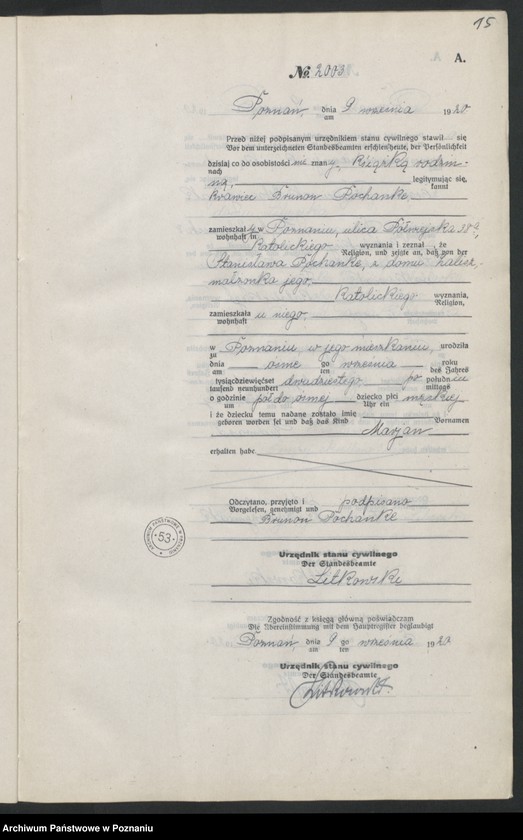 15
A.
№ 2003
Poznań, dnia 9 września 1920
am
Przed niżej podpisanym urzędnikiem stanu cywilnego stawił się
Vor dem unterzeichneten Standesbeamten erschien heute, der Persönlichkeit
dzisiaj co do osobistości nie znany, Książką rodzin-
nach
ną, legitymując się,
kannt
krawiec Brunon Pochanke,
zamieszkały w Poznaniu, ulica Półwiejska 38a,
wohnhaft in
Katolickiego wyznania i zeznał że
Religion, und zeigte an, daß von der
Stanisława Pochanke, z domu
małżonka jego,
Katolickiego wyznania,
Religion,
zamieszkała u niego,
wohnhaft
w Poznaniu, w jego mieszkaniu, urodziła
zu
dnia ósme go września roku
am ten des Jahres
tysiącdziewięćset dwudziestego po południu
tausend neunhundert mittags
o godzinie pół do ósmej dziecko płci męskiej
um Uhr ein
i że dziecku temu nadane zostało imię
geboren worden sei und daß das Kind Vornamen
Marjan
erhalten habe.
Odczytano, przyjęto i podpisano
Vorgelesen, genehmigt und
Brunon Pochanke
ARCHIWUM PAŃSTWOWE W POZNANIU
53
Urzędnik stanu cywilnego
Der Standesbeamte
Litkowski
Zgodność z księgą główną poświadczam
Die Übereinstimmung mit dem Hauptregister beglaubigt
Poznań, dnia 9 go września 1920
am ten
Urzędnik stanu cywilnego
Der Standesbeamte
Litkowski
Archiwum Państwowe w Poznaniu